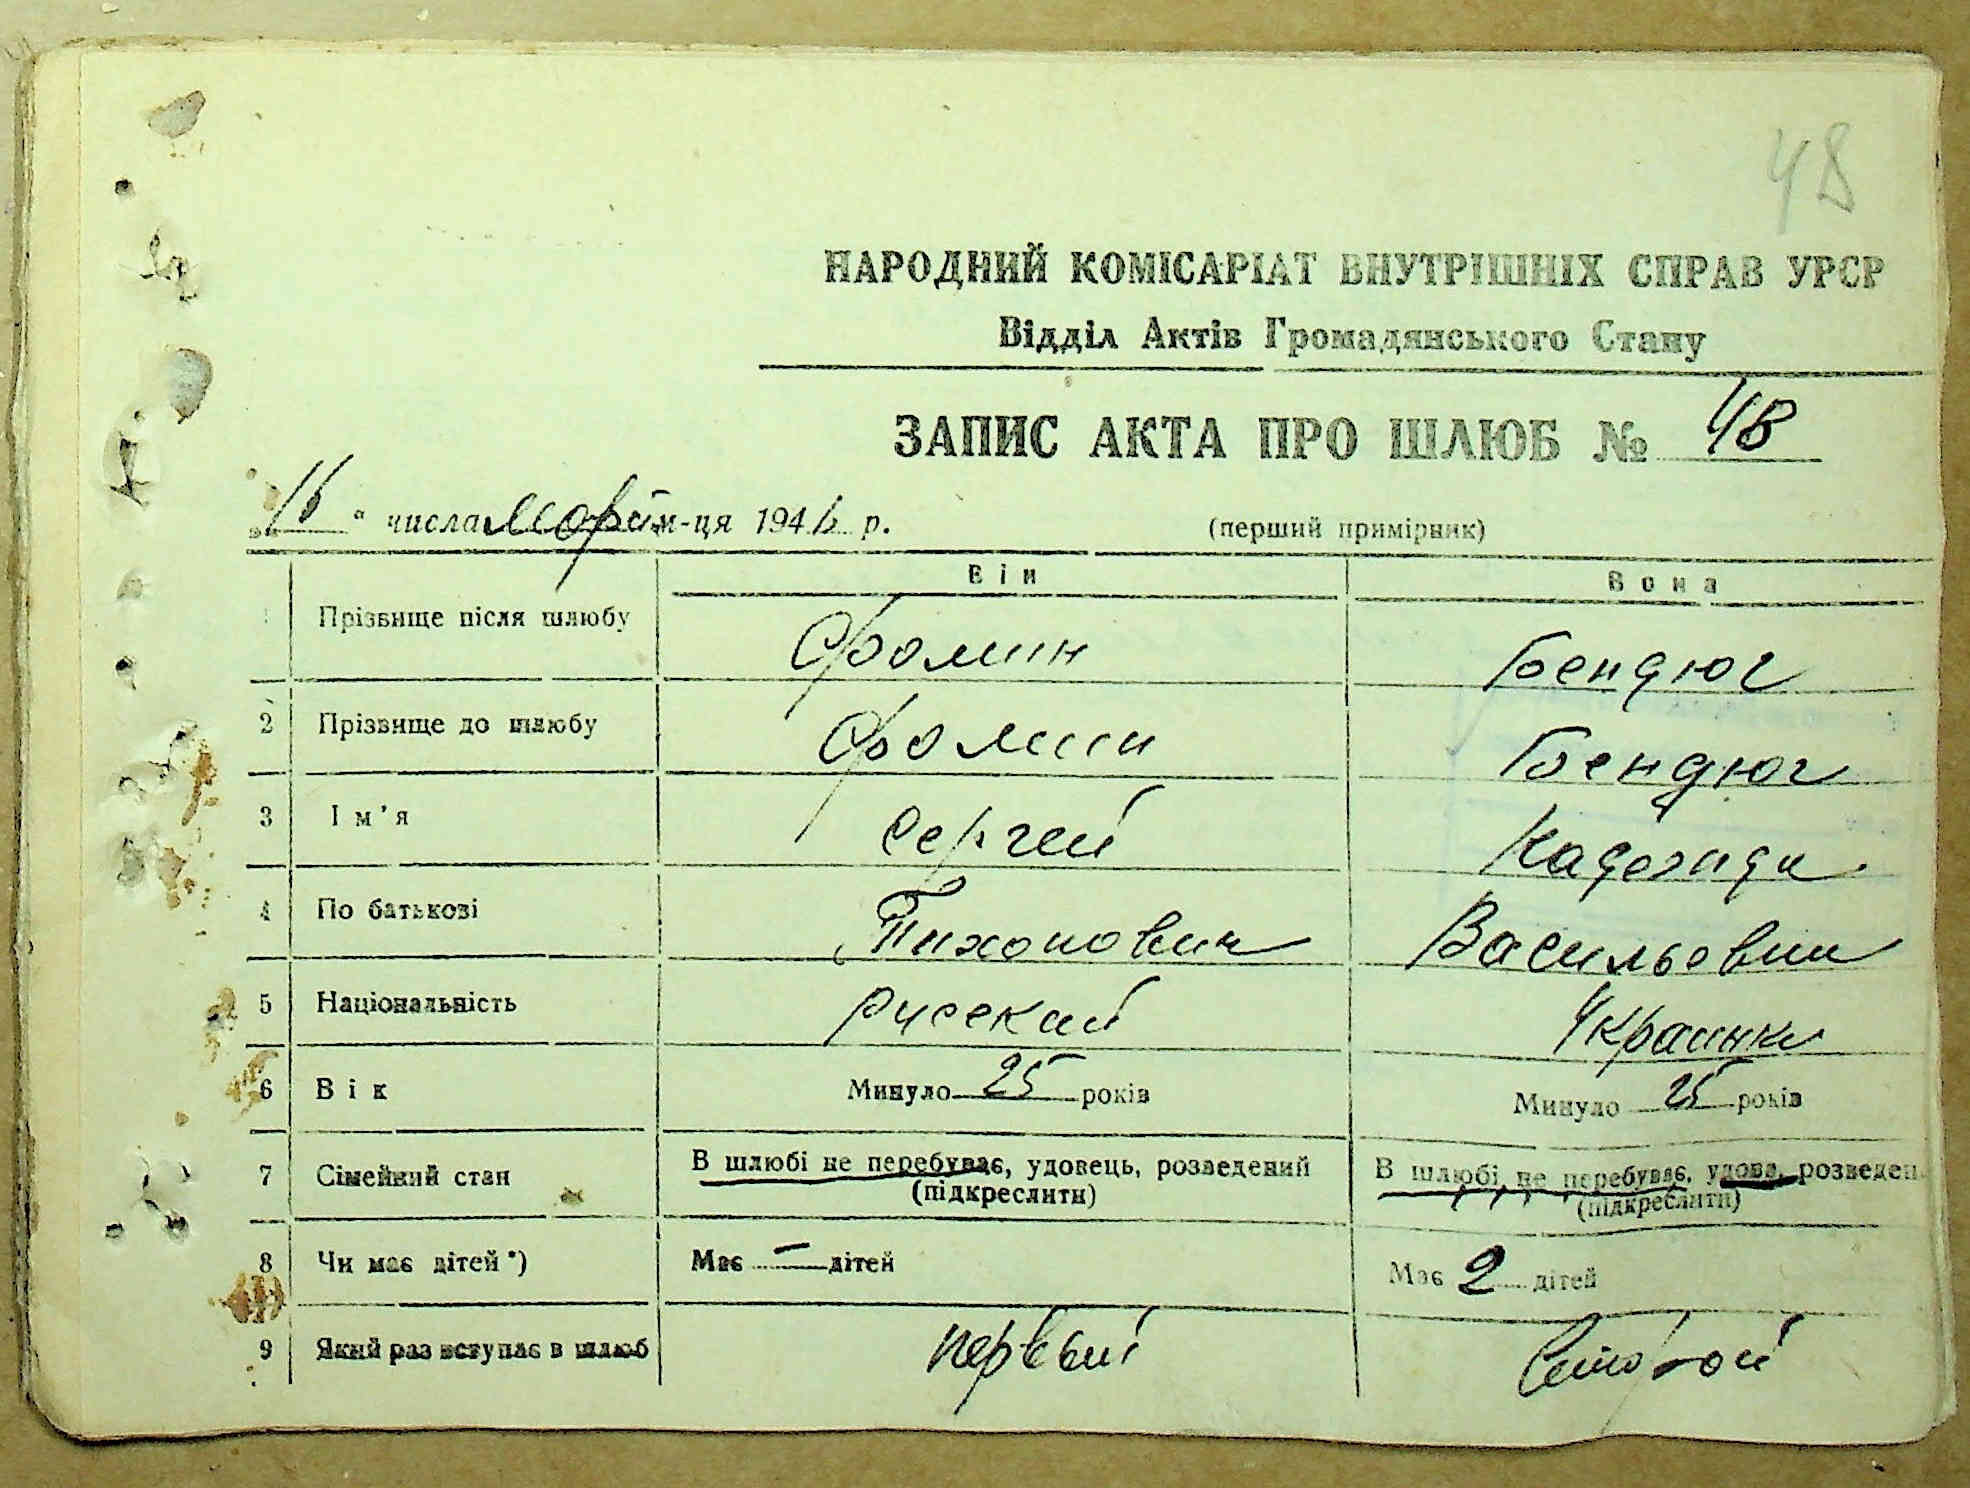 48
НАРОДНИЙ КОМІСАРІАТ ВНУТРІШНІХ СПРАВ УРСР
Відділ Актів Громадянського Стану
ЗАПИС АКТА ПРО ШЛЮБ № 48
„16“ числа м-ця 194 р.
(перший примірник)
Він Вона
1 Прізвище після шлюбу Фомин Бендюг
2 Прізвище до шлюбу Фомин Бендюг
3 Ім'я Сергей Надежда
4 По батькові Тихонович Васильевна
5 Національність Русский Украинка
6 Вік Минуло 25 років Минуло 25 років
7 Сімейний стан В шлюбі не перебуває, удовець, розведений В шлюбі не перебуває, удова, розведен
(підкреслити) (підкреслити)
8 Чи має дітей *) Має — дітей Має 2 дітей
9 Який раз вступає в шлюб первый второй